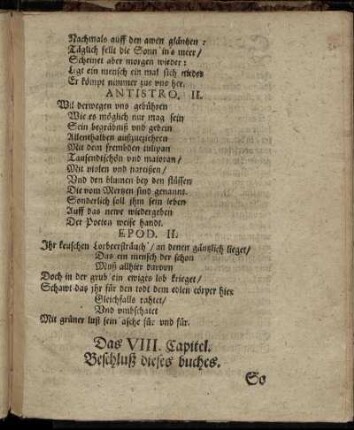 Nachmals auff den awen gläntzen:
Täglich fellt die Sonn' in's meer/
Scheinet aber morgen wieder:
Ligt ein mensch ein mal sich nieder
Er kömpt nimmer zue vns her.
ANTISTRO. II.
Wil derwegen vns gebühren
Wie es möglich nur mag sein
Sein begräbniß vnd gebein
Allenthalben außzuziehren
Mit dem frembden tulipan
Tausendtschön vnd maioran/
Mit violen vnd narcissen/
Vnd den blumen bey den flüssen
Die vom Mertzen sind genannt.
Sonderlich soll jhm sein leben
Auff das newe wiedergeben
Der Poeten weise handt.
EPOD. II.
Ihr keuschen Lorbeersträuch'/ an denen gäntzlich lieget/
Das ein mensch der schon
Muß allhier darvon
Doch in der grub' ein ewiges lob krieget/
Schawt das jhr für den todt dem edlen cörper hier
Gleichfalls rahtet/
Vnd vmbschatet
Mit grüner lust sein' asche für vnd für.
Das VIII. Capitel.
Beschluß dieses buches.
So